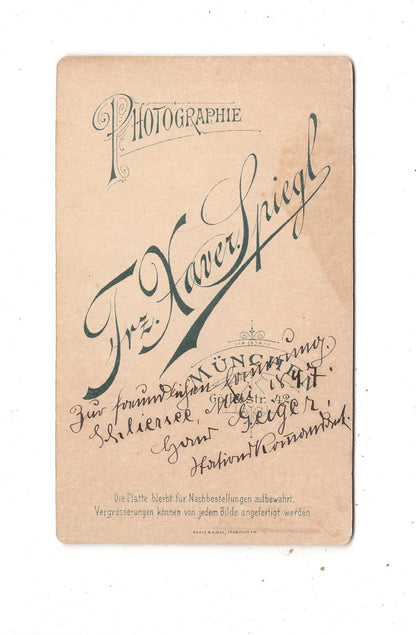 PHOTOGRAPHIE
Frz. Xaver Spiegl
MÜNCHEN
Zur freundlichen Erinnerung.
str. 42
Schliersee, Mai 1897.
Hans Geiger,
Stationskomandant.
Die Platte bleibt für Nachbestellungen aufbewahrt.
Vergrösserungen können von jedem Bilde angefertigt werden.